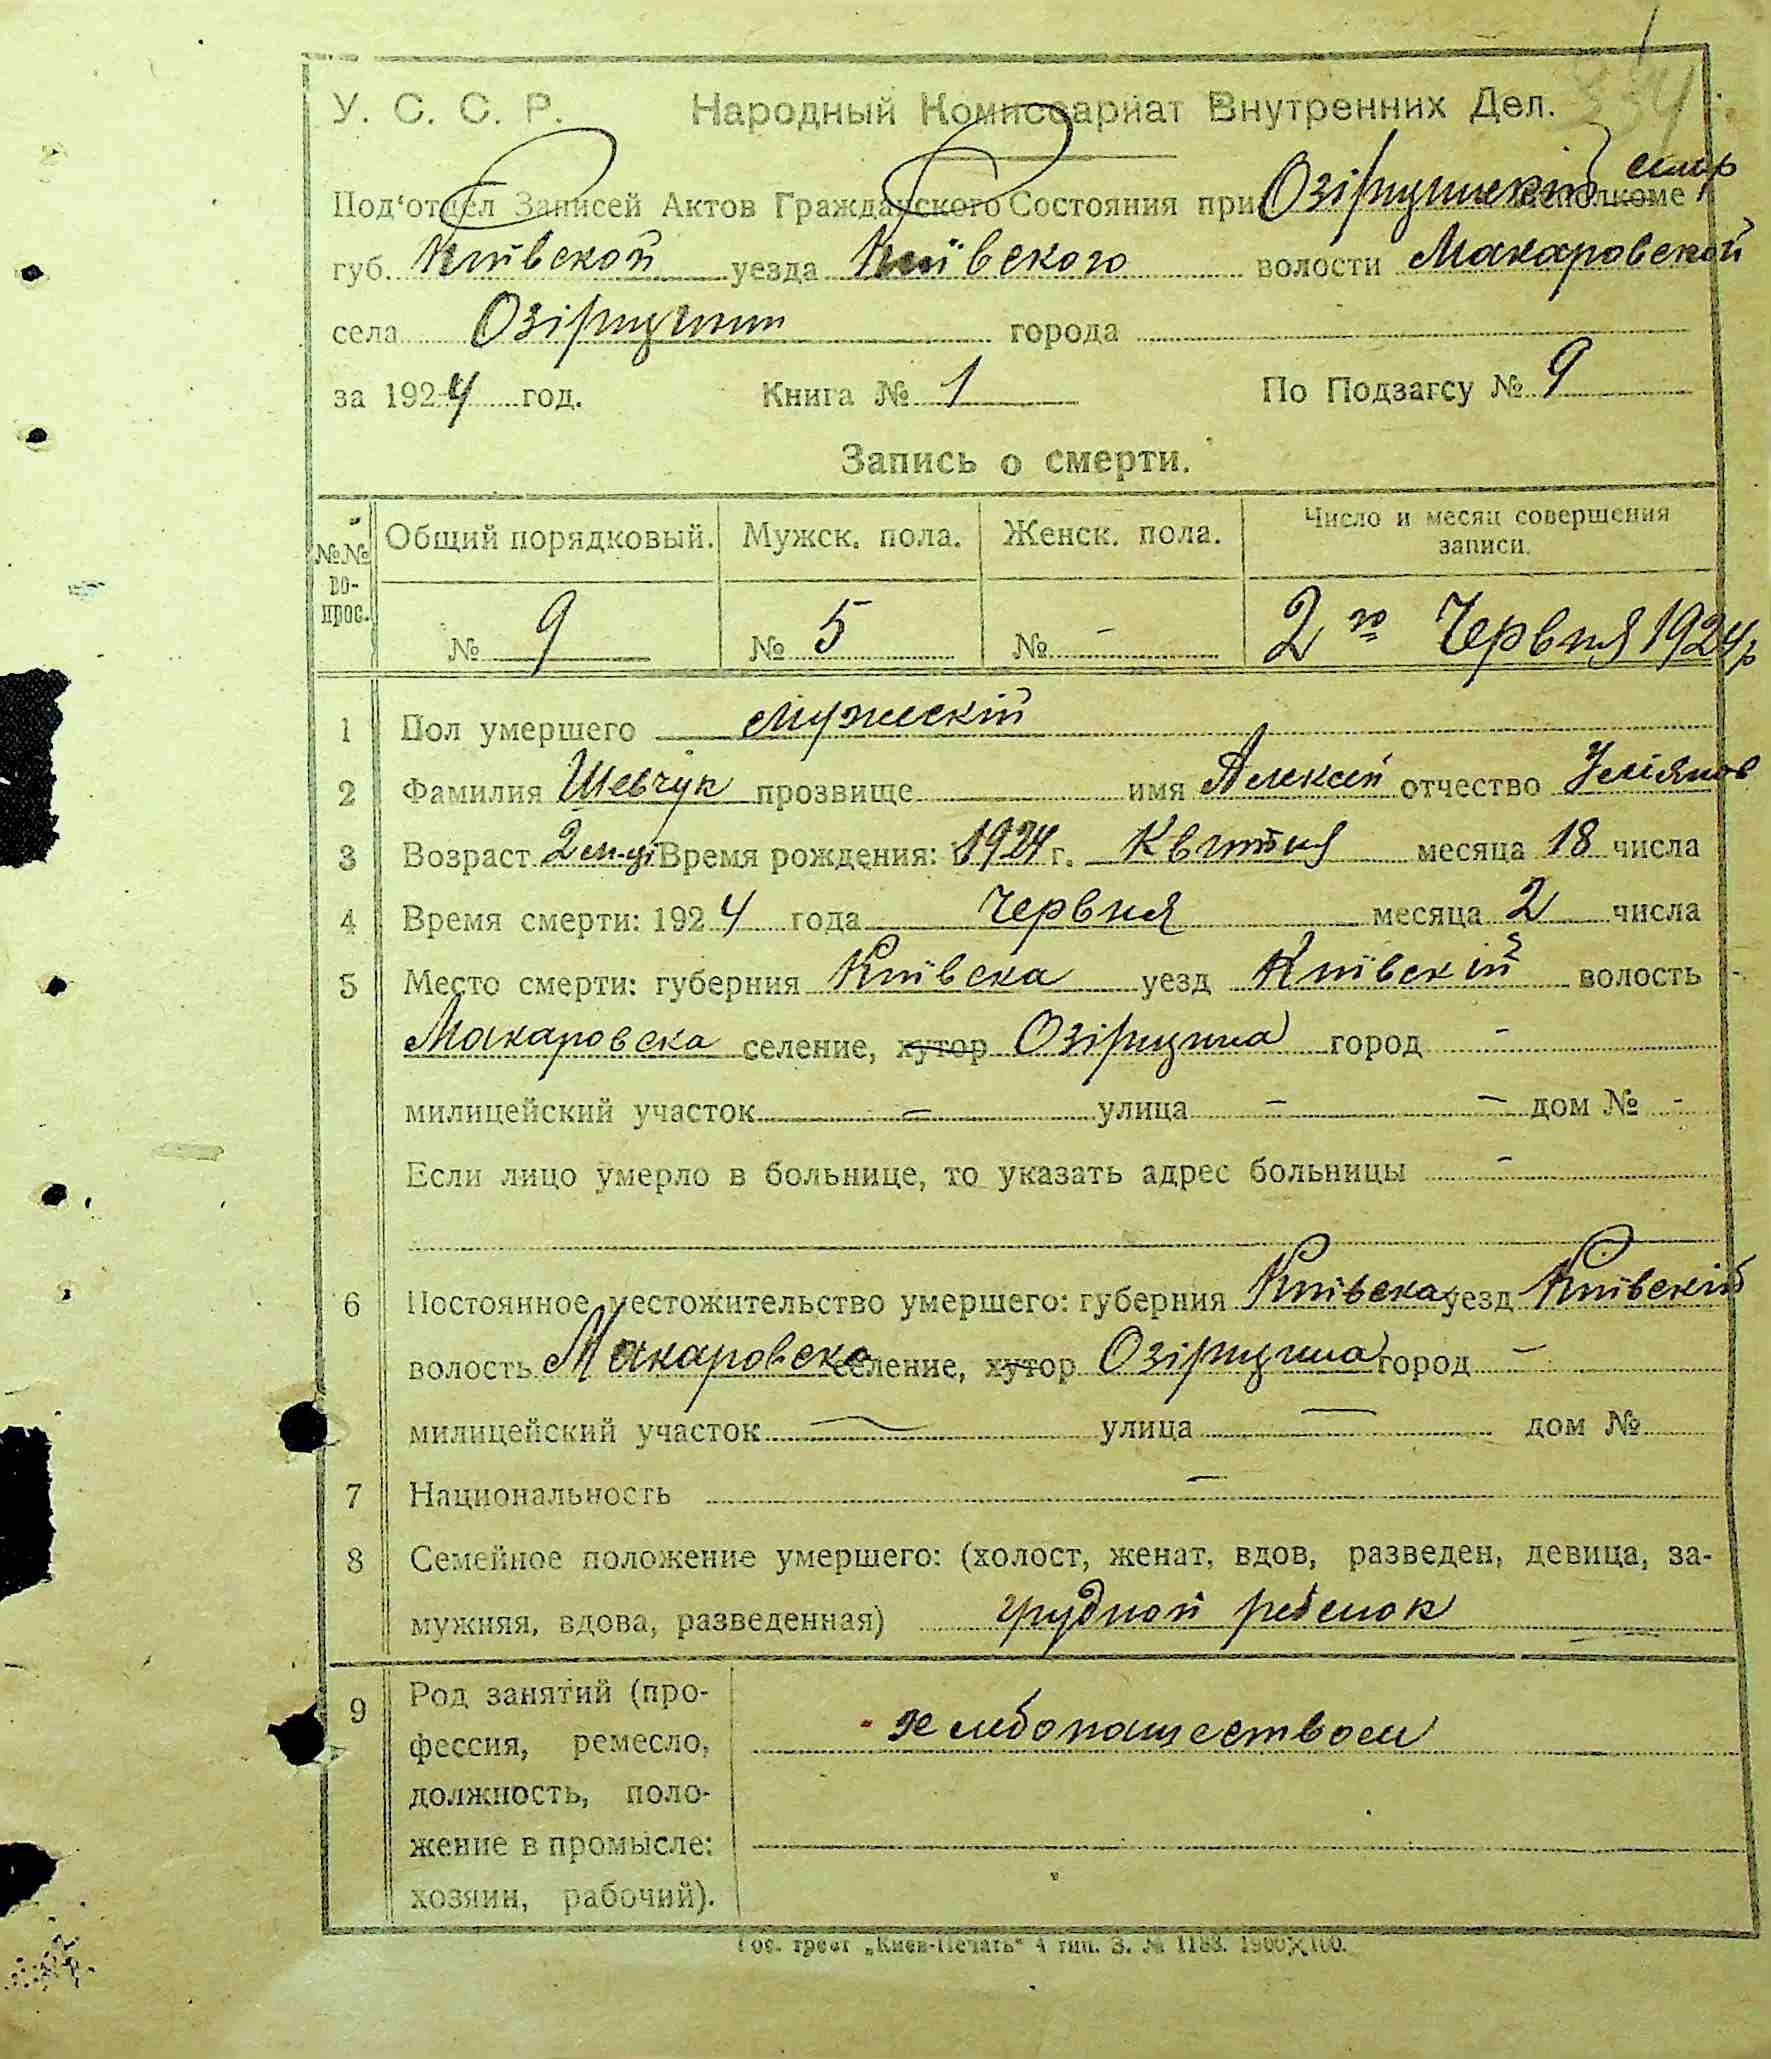 У. С. С. Р. Народный Комиссариат Внутренних Дел.
Под'отдел Записей Актов Гражданского Состояния при исполкоме
губ. Київской уезда Київского волости Макаровской
села Озірщини города
за 1924 год. Книга № 1 По Подзагсу № 9
Запись о смерти.
№№ вопрос. Общий порядковый. Мужск. пола. Женск. пола. Число и месяц совершения записи.
№ 9 № 5 № - 2го Червня 1924р
1 Пол умершего мужескій
2 Фамилия Шевчук прозвище имя Алексей отчество
3 Возраст 2 м-ці Время рождения: 1924 г. Квітня месяца 18 числа
4 Время смерти: 1924 года Червня месяца 2 числа
5 Место смерти: губерния Київска уезд Київскій волость
Макаровска селение, хутор Озірщина город -
милицейский участок - улица - - дом № -
Если лицо умерло в больнице, то указать адрес больницы -
6 Постоянное местожительство умершего: губерния Київска уезд Київскій
волость Макаровска селение, хутор Озірщина город -
милицейский участок — улица — дом №
7 Национальность -
8 Семейное положение умершего: (холост, женат, вдов, разведен, девица, за-
мужняя, вдова, разведенная) грудной ребенок
9 Род занятий (про-
фессия, ремесло, хлебопашеством
должность, поло-
жение в промысле:
хозяин, рабочий).
Гос. трест „Киев-Печать" 4 тип. З. № 1183. 1900×100.